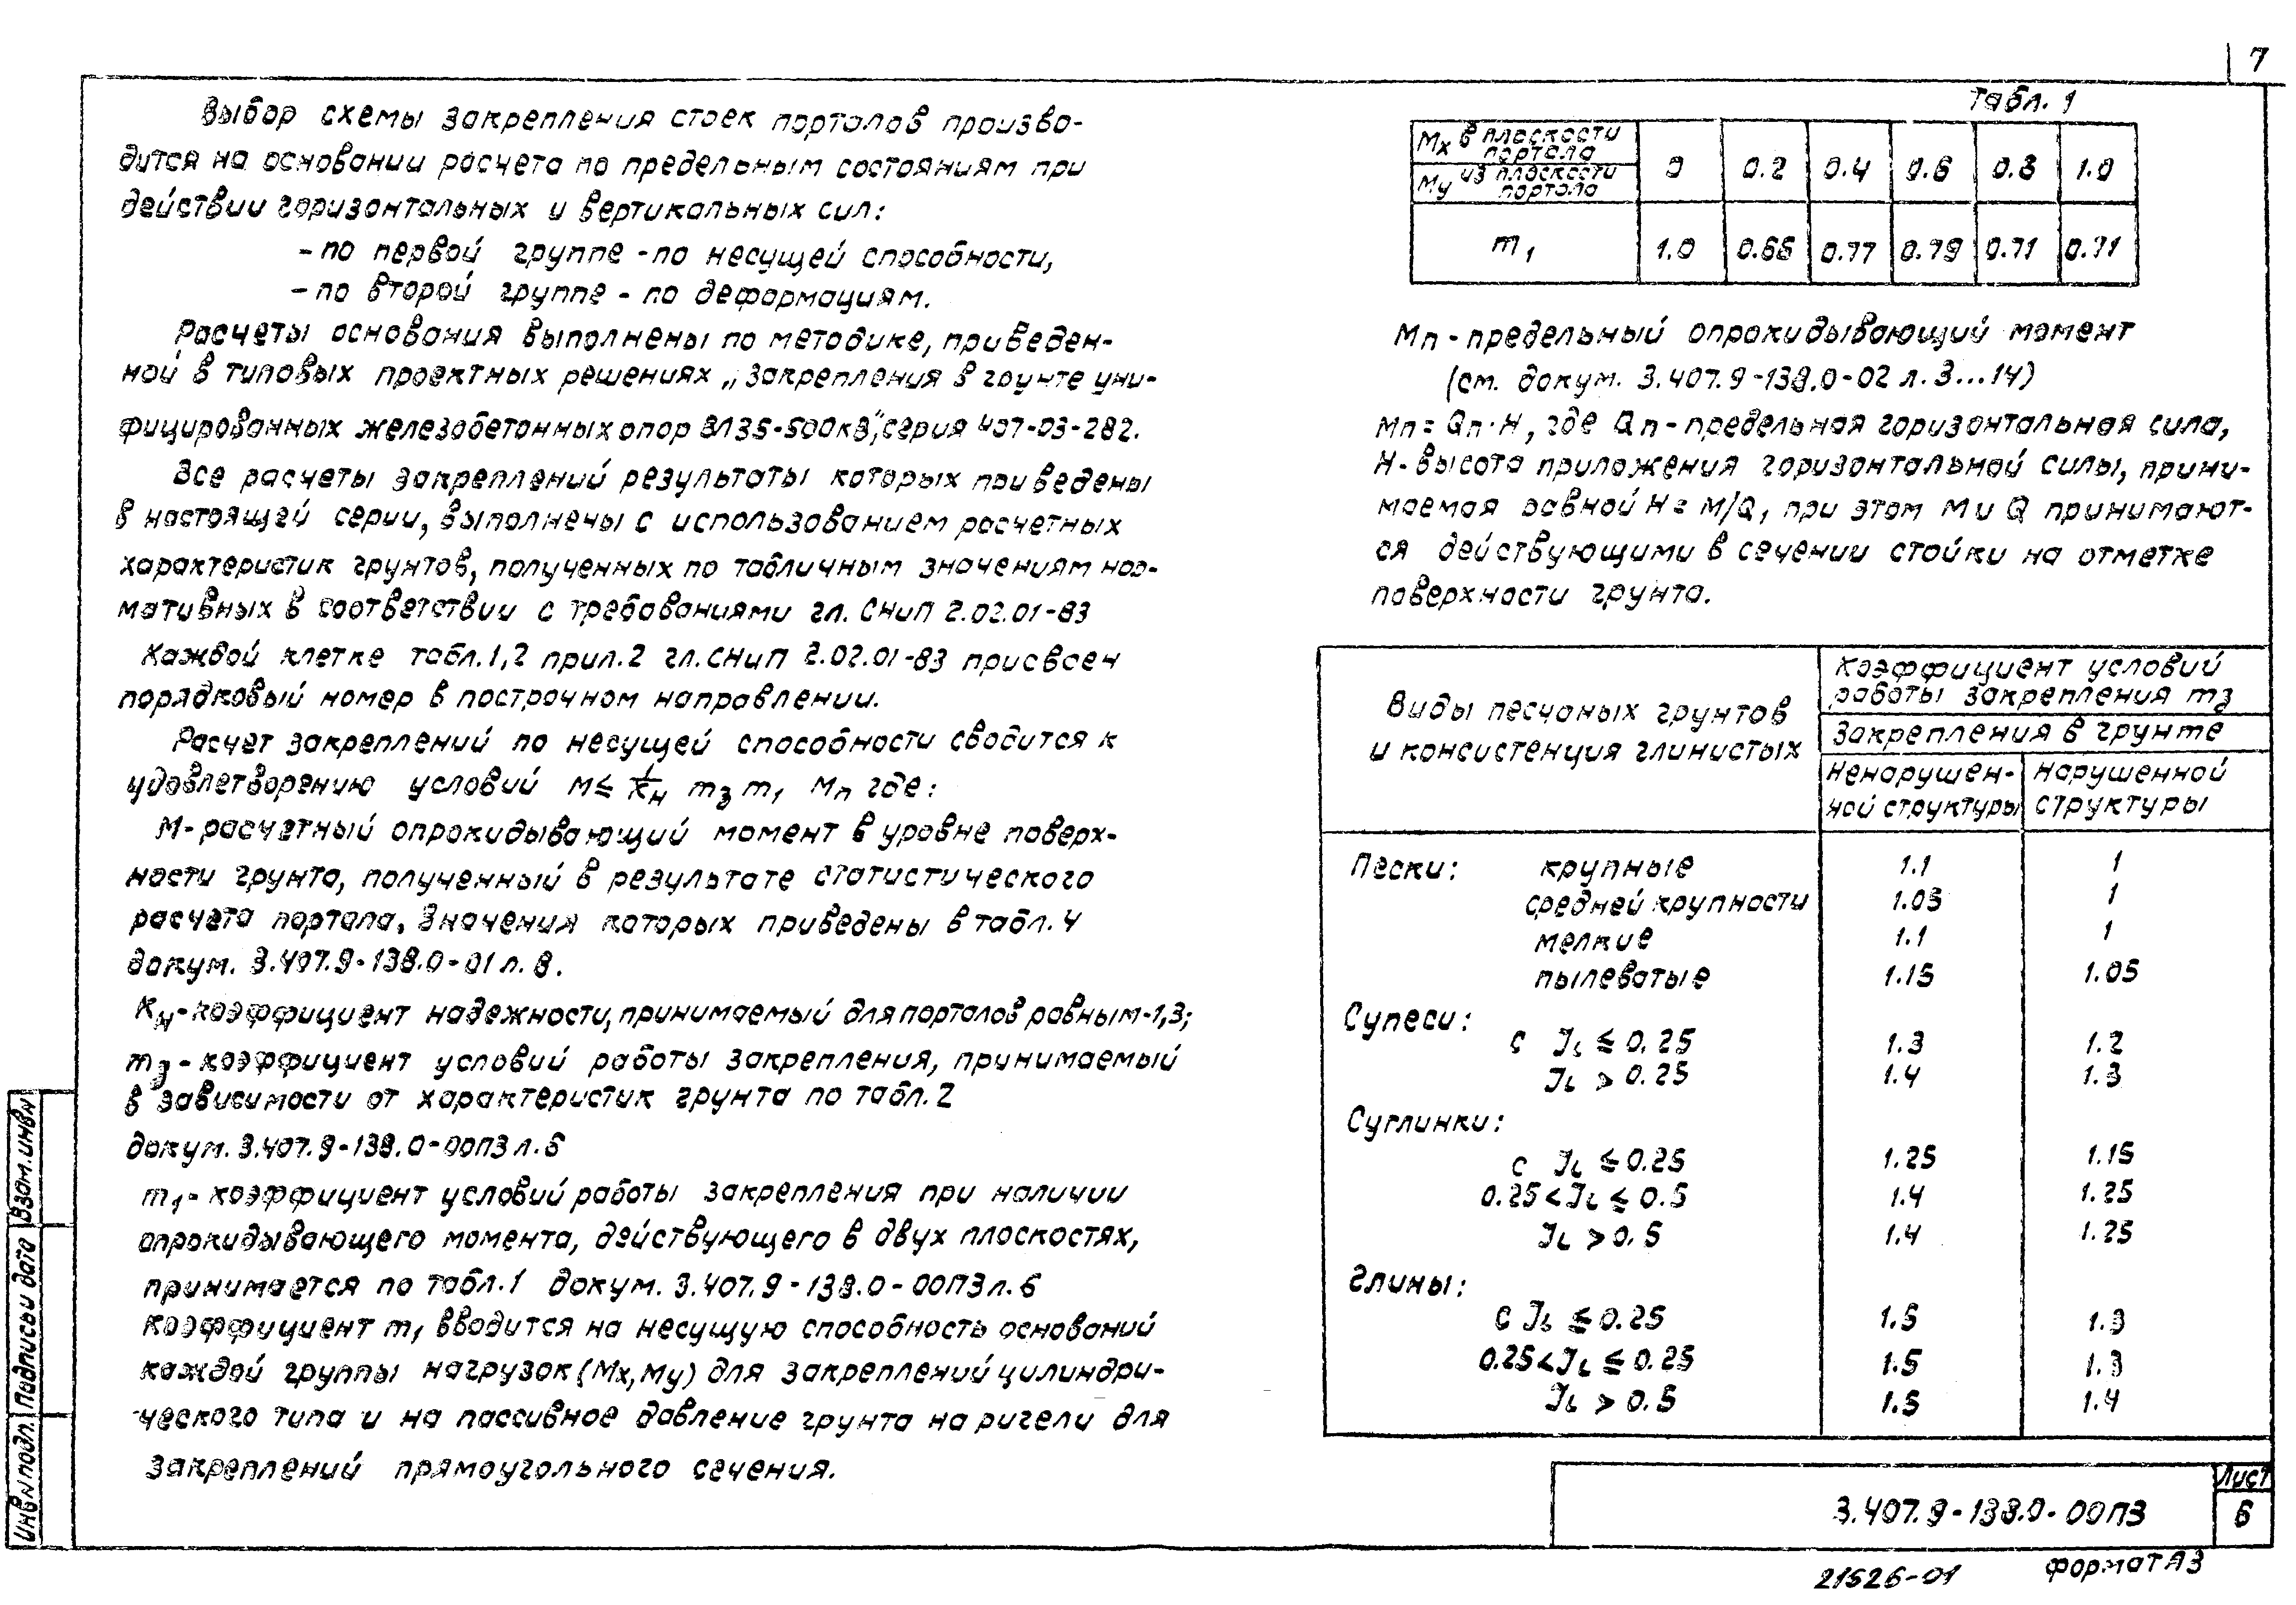 7
Выбор схемы закрепления стоек порталов произво-
дится на основании расчета по предельным состояниям при
действии горизонтальных и вертикальных сил:
- по первой группе - по несущей способности,
- по второй группе - по деформациям.
Расчеты основания выполнены по методике, приведен-
ной в типовых проектных решениях „Закрепления в грунте уни-
фицированных железобетонных опор ВЛ35-500кВ", серия 407-03-282.
Все расчеты закреплений результаты которых приведены
в настоящей серии, выполнены с использованием расчетных
характеристик грунтов, полученных по табличным значениям нор-
мативных в соответствии с требованиями гл. СНиП 2.02.01-83
Каждой клетке табл.1,2 прил.2 гл. СНиП 2.02.01-83 присвоен
порядковый номер в построчном направлении.
Расчет закреплений по несущей способности сводится к
удовлетворению условий М ≤ 1/Kн mз m1 Мп где:
М - расчетный опрокидывающий момент в уровне поверх-
ности грунта, полученный в результате статистического
расчета портала, значения которых приведены в табл. 4
докум. 3.407.9-138.0-01 л. 8.
Kн - коэффициент надежности, принимаемый для порталов равным-1,3;
mз - коэффициент условий работы закрепления, принимаемый
в зависимости от характеристик грунта по табл. 2
докум. 3.407.9-138.0-00ПЗ л. 6
m1 - коэффициент условий работы закрепления при наличии
опрокидывающего момента, действующего в двух плоскостях,
принимается по табл.1 докум. 3.407.9-138.0-00ПЗ л. 6
Коэффициент m1 вводится на несущую способность оснований
каждой группы нагрузок (Мх, Му) для закреплений цилиндри-
ческого типа и на пассивное давление грунта на ригели для
закреплений прямоугольного сечения.
Табл. 1
Мх в плоскости портала
Му из плоскости портала
0 0.2 0.4 0.6 0.8 1.0
m1 1.0 0.77 0.71 0.71
Мп - предельный опрокидывающий момент
(см. докум. 3.407.9-138.0-02 л. 3...14)
Мп = Qп·Н, где Qп - предельная горизонтальная сила,
Н - высота приложения горизонтальной силы, прини-
маемая равной Н = М/Q, при этом М и Q принимают-
ся действующими в сечении стойки на отметке
поверхности грунта.
Виды песчаных грунтов
и консистенция глинистых
Коэффициент условий
работы закрепления mз
Закрепления в грунте
Ненарушен-
ной структуры
Нарушенной
структуры
Пески: крупные 1.1 1
средней крупности 1.05 1
мелкие 1.1 1
пылеватые 1.15 1.05
Супеси:
с JL ≤ 0.25 1.3 1.2
JL > 0.25 1.4 1.3
Суглинки:
с JL ≤ 0.25 1.25 1.15
0.25 < JL ≤ 0.5 1.4 1.25
JL > 0.5 1.4 1.25
Глины:
с JL ≤ 0.25 1.5 1.3
0.25 < JL ≤ 0.25 1.5 1.3
JL > 0.5 1.5 1.4
3.407.9-138.0-00ПЗ
Лист
6
21526-01
Формат А3
Взам. инв.№
Подпись и дата
Инв.№ подл.